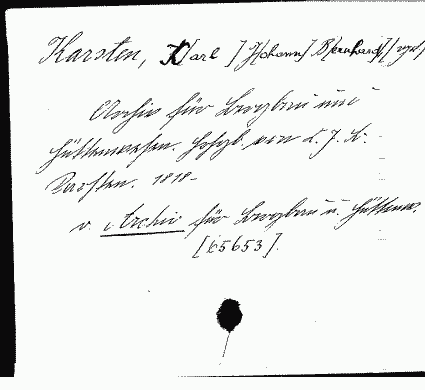 Karsten, K[arl] J[ohann] B[ernhard]
Archiv für Bergbau und
Hüttenwesen. Hrsgb. von C. J. B.
Karsten. 1818-
v. Archiv für Bergbau u. Hüttenw.
[65653].